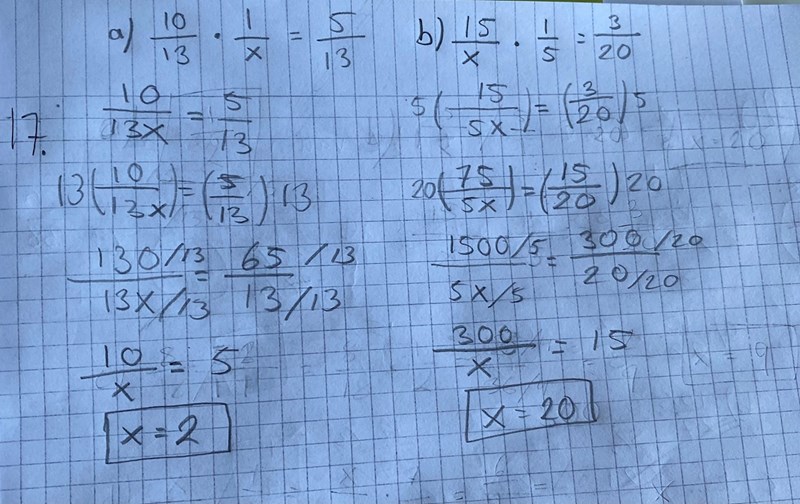 17.
a) 10/13 · 1/x = 5/13
10/13x = 5/13
13(10/13x) = (5/13)13
130/13 / 13x/13 = 65/13 / 13/13
10/x = 5
x = 2
b) 15/x · 1/5 = 3/20
5(15/5x) = (3/20)5
20(75/5x) = (15/20)20
1500/5 / 5x/5 = 300/20 / 20/20
300/x = 15
x = 20